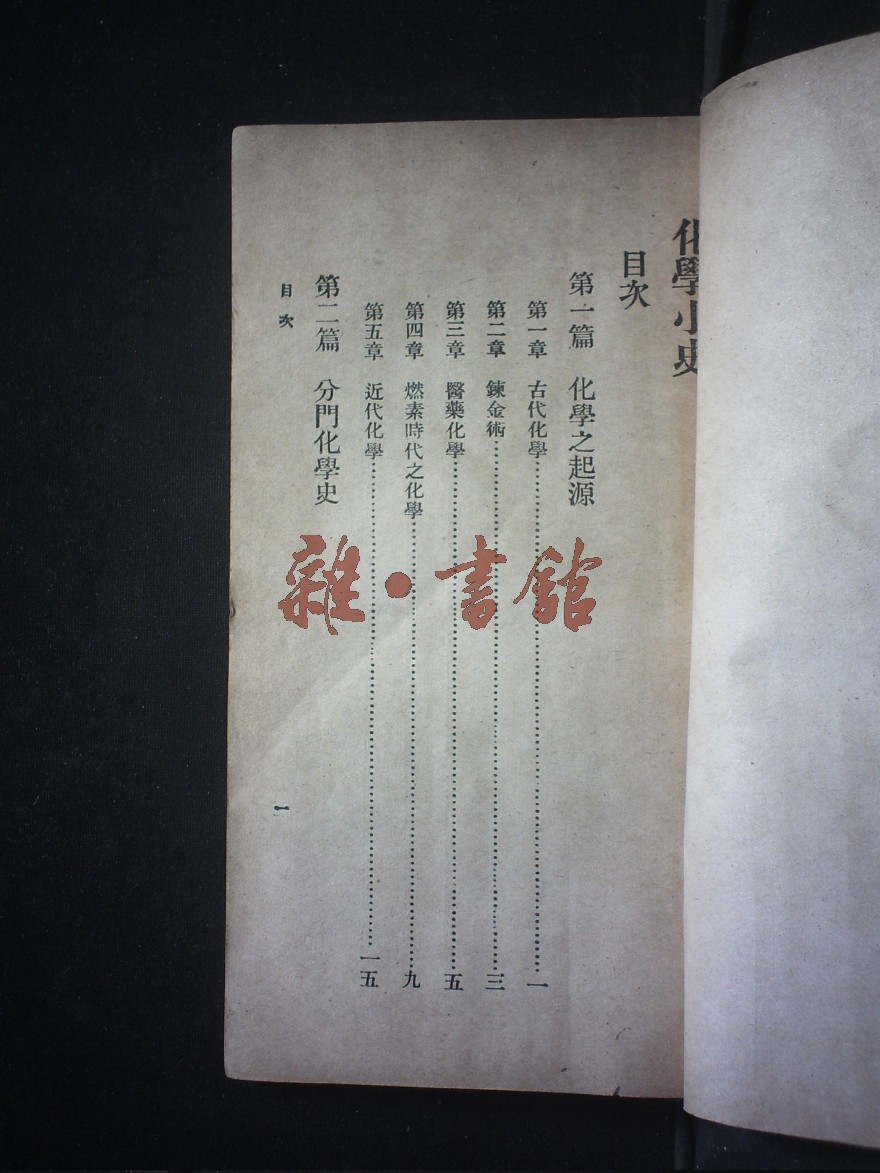 化學小史
目次
第一篇 化學之起源
第一章 古代化學……一
第二章 鍊金術……三
第三章 醫藥化學……五
第四章 燃素時代之化學……九
第五章 近代化學……一五
第二篇 分門化學史
目次
一
雜·書館